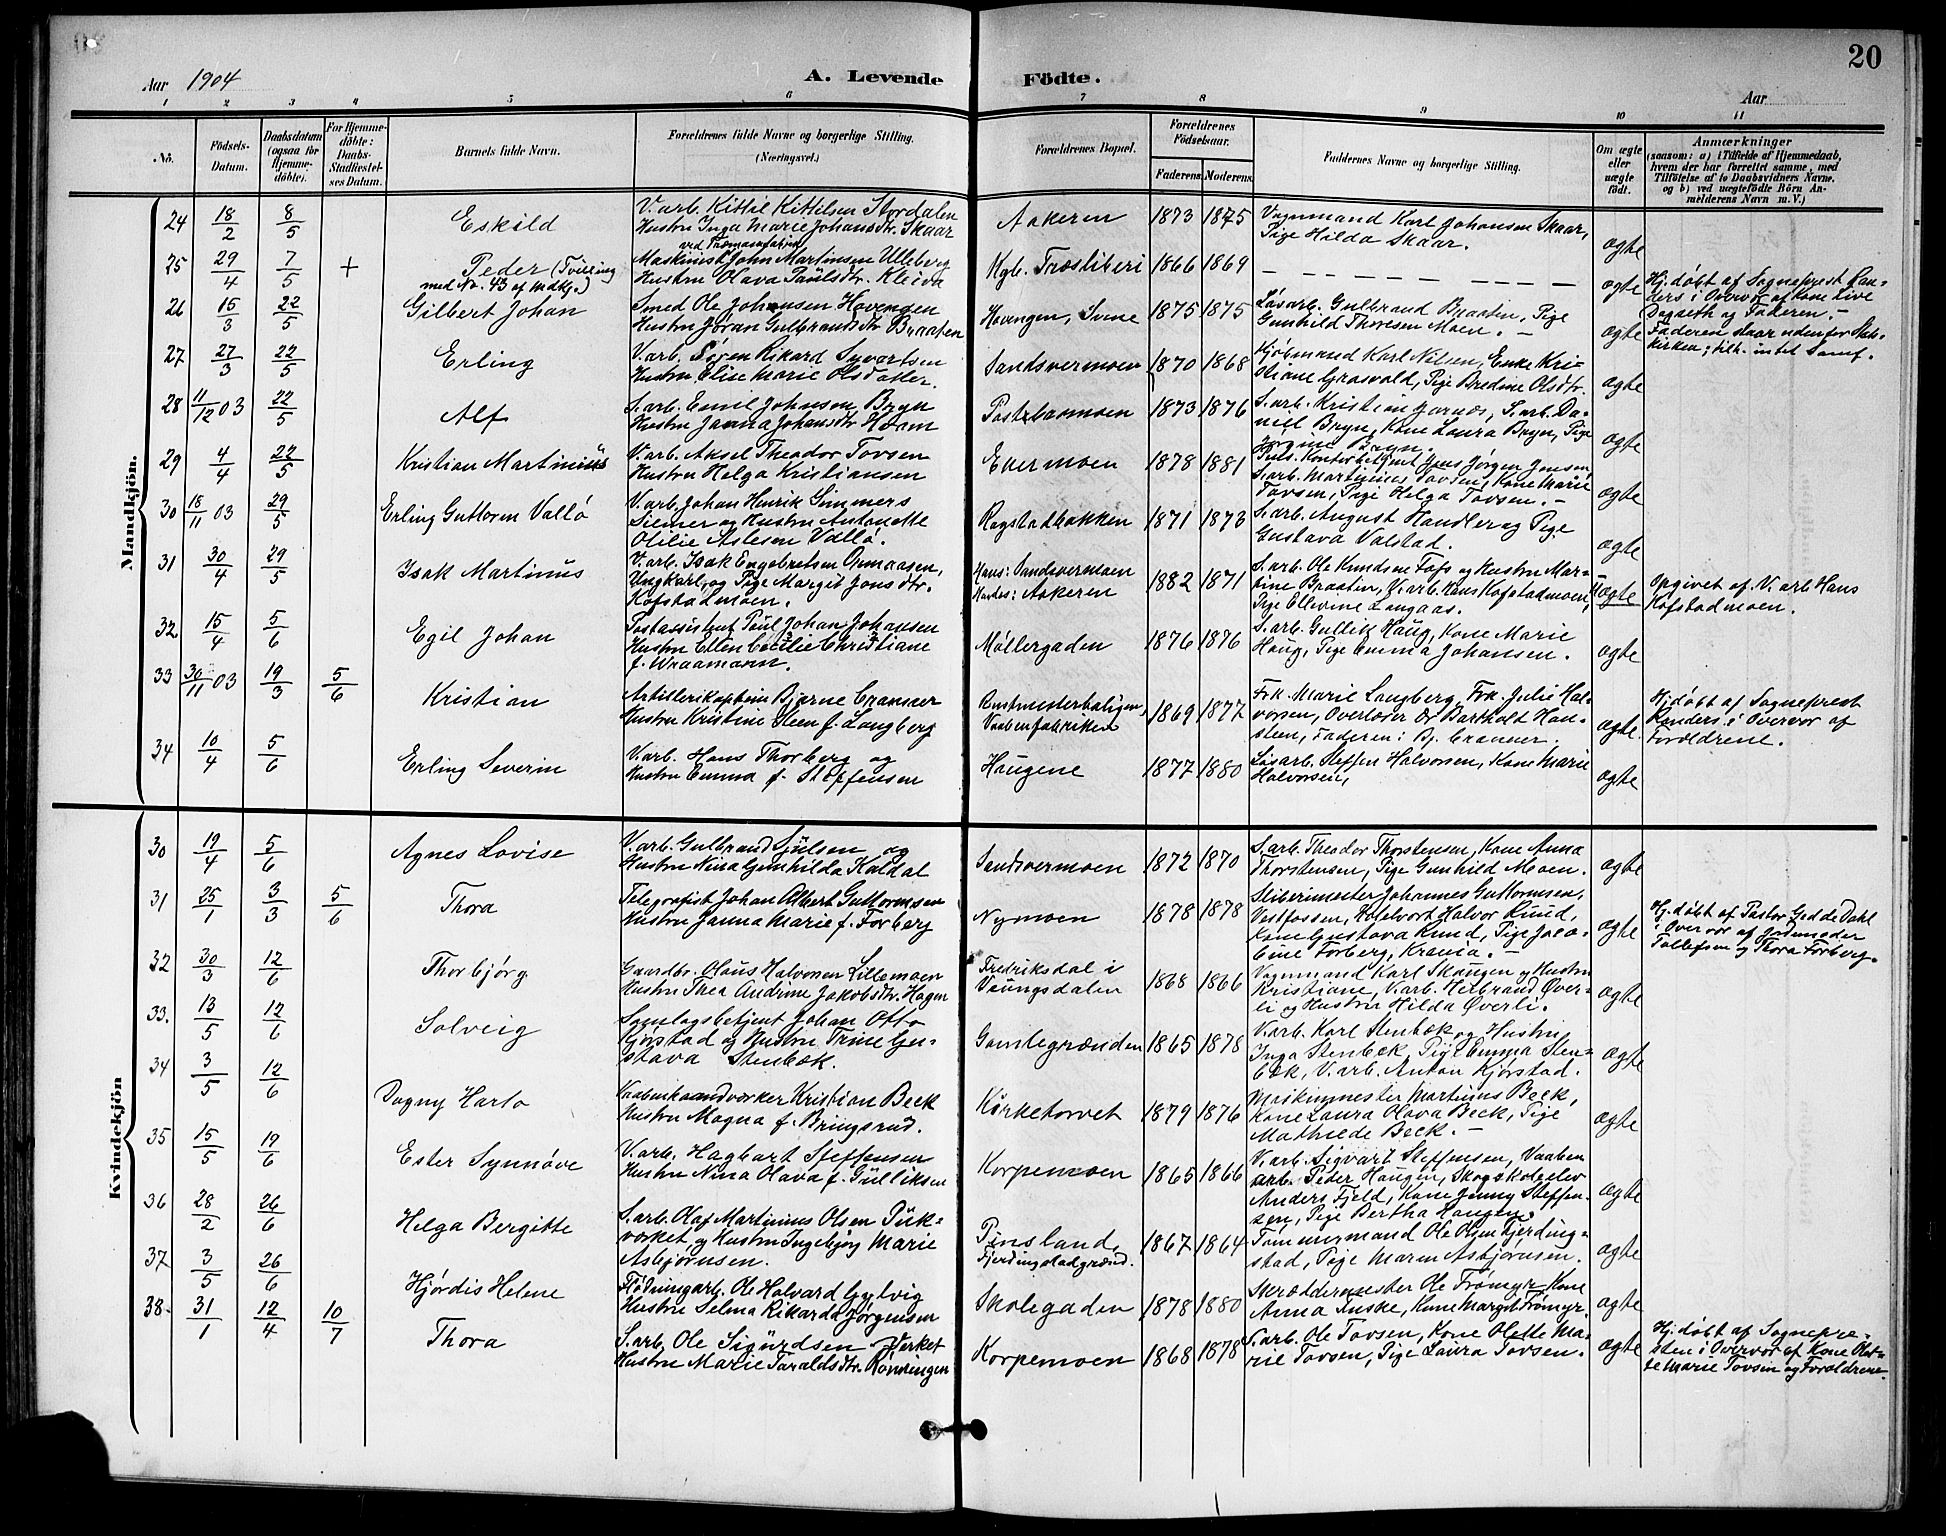 20
Aar 1904
A. Levende
Födte.
Aar
1 2 3 4 5 6 7 8 9 10 11
No.
Födsels-
Datum.
Daabsdatum
(ogsaa for
Hjemme-
döbte).
For Hjemme-
döbte:
Daabs-
Stadfæstel-
ses Datum.
Barnets fulde Navn.
Forældrenes fulde Navne og borgerlige Stilling.
(Næringsvei.)
Forældrenes Bopæl.
Forældrenes
Födselsaar.
Faderens Moderens
Faddernes Navne og borgerlige Stilling.
Om ægte
eller
uægte
födt.
Anmærkninger
(saasom: a) i Tilfælde af Hjemmedaab,
hvem der har forrettet samme, med
Tilföielse af to Daabsvidners Navne,
og b) ved uægtefödte Börn An-
melderens Navn m. V.)
Mandkjön.
24 18/2 8/5 Eskild
V.arb. Kittil Kittilsen Stordalen
Hustru Inga Marie Johansdtr. Skaar
Aakeren 1873 1875
Vognmand Karl Johansen Skaar,
Pige Hilda Skaar.
ægte
25 29/4 7/5 + Peder (Tvilling
med No. 43 af mdkj.)
ved Træmassefabrik
Maskinist John Martinsen Ulleberg
Hustru Olava Paulsdtr. Kleiva
Kgb. Træsliberi 1866 1869
— — — — — — — —
ægte
Hj.døbt af Sogneprest Ran-
ders i Overvær af Kone Live
Dagseth og Faderen. —
26 15/3 22/5 Gilbert Johan
Smed Ole Johansen Hovengen
Hustru Jøran Gulbrandsdtr Braaten
Hovengen, Svene 1875 1875
Løsarb. Gulbrand Braaten, Pige
Gunhild Thoresen Moen. —
ægte
Faderen staar udenfor Stats-
kirken; tilh. intet Samf.
27 27/3 22/5 Erling
V.arb. Søren Rikard Syvertsen
Hustru Elise Marie Olsdatter.
Sandsværmoen 1870 1868
Kjøbmand Karl Nilsen, Enke Kri-
stiane Grosvold, Pige Bredine Olsdtr.
ægte
28 11/12 03 22/5 Alf
S.arb. Emil Johnsen Bryn
Hustru Janna Johansdtr Horn
1873 1876
S.arb. Kristian Jornæs, S.arb. Da-
niel Bryn, Kone Laura Bryn, Pige
Bryn.
ægte
29 4/4 22/5 Kristian Martinius
V.arb. Aksel Theodor Tovsen
Hustru Helga Kristiansen
Evermoen 1878 1881
Kontorbetjent Jens Jørgen Jensen,
S.arb. Martinius Tovsen, Kone Marie
Tovsen, Pige Helga Tovsen. —
ægte
30 18/11 03 29/5 Erling Guttorm Vallø
V.arb. Johan Henrik Simmers
Siemer og Hustru Antonette
Otilie Aslesen Vallø.
Rogstadbakken 1871 1873
S.arb. August Handler og Pige
Gustava Valstad.
ægte
31 30/4 29/5 Isak Martinus
V.arb. Isak Engebretsen Opmaasen,
Ungkarl, og Pige Margit Jonsdtr.
Kofstadmoen.
Hans: Sandsværmoen
Hendes: Aakeren 1882 1871
S.arb. Ole Knudsen Fofs og Hustru Mar-
tine Braaten, V.arb. Hans Kofstadmoen,
Pige Ellevine Langaas.
uægte
Opgivet af V.arb Hans
Kofstadmoen.
32 15/4 5/6 Egil Johan
Postassistent Paul Johan Johansen
Hustru Ellen Cecilie Christiane
f. Wraamann.
Møllergaden 1876 1876
S.arb. Gullik Haug, Kone Marie
Haug, Pige Emma Johansen.
ægte
33 30/11 03 19/3 5/6 Kristian
Artillerikaptein Bjarne Cranner
Hustru Kristine Steen f. Langberg
Rustmesterboligen,
Vaabenfabriken 1869 1877
Frk. Marie Langberg, Frk. Julie Hal-
vorsen, Overlærer Dr Bartholt Han-
steen, Faderen: Bj. Cranner.
ægte.
Hj.døbt af Sogneprest
Randers i Overvær af
Forældrene.
34 10/4 5/6 Erling Severin
V.arb. Hans Thorberg og
Hustru Emma f. Steffensen
Haugene 1877 1880
Løsarb. Steffen Halvorsen, Kone Marie
Halvorsen,
ægte
Kvindekjön
30 19/4 5/6 Agnes Lovise
V.arb. Gulbrand Sjulsen og
Hustru Nina Gunhilda Kaldal
Sandsværmoen 1872 1870
S.arb. Theodor Thorstensen, Kone Anna
Thorstensen, Pige Gunhild Moen.
ægte
31 25/1 3/3 5/6 Thora
Telegrafist Johan Albert Guttormsen
Hustru Janna Marie f. Forberg
Nymoen 1878 1878
Sliberimester Johannes Guttormsen,
Vestfossen, Halvor Ruud,
Kone Gustava Ruud, Pige Jaco-
bine Forberg, Krania. —
ægte
Hj.døbt af Pastor Gedde Dahl
i Overvær af Jordmoder
Tollefsen og Thora Forberg.
32 30/3 12/6 Thorbjørg
Gaardbr. Olaus Halvorsen Lillemoen
Hustru Thea Andrine Jakobsdtr. Hagen
Fredriksdal i
Veungsdalen 1868 1866
Vognmand Karl Skaugen og Hustru
Kristiane, V.arb. Herbrand Øver-
li og Hustru Hilda Øverli.
ægte
33. 13/5 12/6 Solveig
Samlagsbetjent Johan Otto
Kjørstad og Hustru Trine Gu-
stava Stenbæk.
Gamlegrænden 1865 1878
V.arb. Karl Stenbæk og Hustru
Inga Stenbæk, Pige Emma Sten-
bæk, V.arb. Anton Kjørstad.
ægte
34 3/5 12/6 Dagny Harto
Vaabenhaandværker Kristian Beck
Hustru Magna f. Bringsrud.
Kirketorvet 1879 1876
Maskinmester Martinius Beck,
Kone Laura Olava Beck, Pige
Mathilde Beck. —
ægte
35 15/5 19/6 Ester Synnøve
V.arb. Hagbart Steffensen
Hustru Nina Olava f. Gulliksen
Korpemoen 1865 1866
V.arb. Sigvart Steffensen, Vaaben
arb. Peder Haugen, Skogskoleelev
Anders Fjeld, Kone Jenny Steffen-
sen, Pige Bertha Haugen.
ægte
36 28/2 26/6 Helga Bergitte
S.arb. Olaf Martinius Olsen Puk-
værket, og Hustru Ingebjørg Marie
Asbjørnsen.
Pinsland,
Fjerdingstadgrænd. 1867 1864
Tømmermand Ole Olsen Fjerding-
stad, Pige Maren Asbjørnsen.
ægte
37 3/5 26/6 Hjørdis Helene
Fløtningarb. Ole Halvard Gytvig
Hustru Selma Rikarda Jørgensen
Skolegaden 1878 1880
Skræddermester Ole Frømyr, Kone
Anna Tuske, Kone Margit Frømyr
ægte
38. 31/1 12/4 10/7 Thora
S.arb. Ole Sigurdsen Verket
Hustru Marie Taraldsdtr. Rønningen
Korpemoen 1868 1878
S.arb. Ole Tovsen, Kone Olette Ma-
rie Tovsen, Pige Laura Tovsen.
ægte
Hj.døbt af Sognepre-
sten i Overvær af Kone Olet-
te Marie Tovsen og Forældrene.